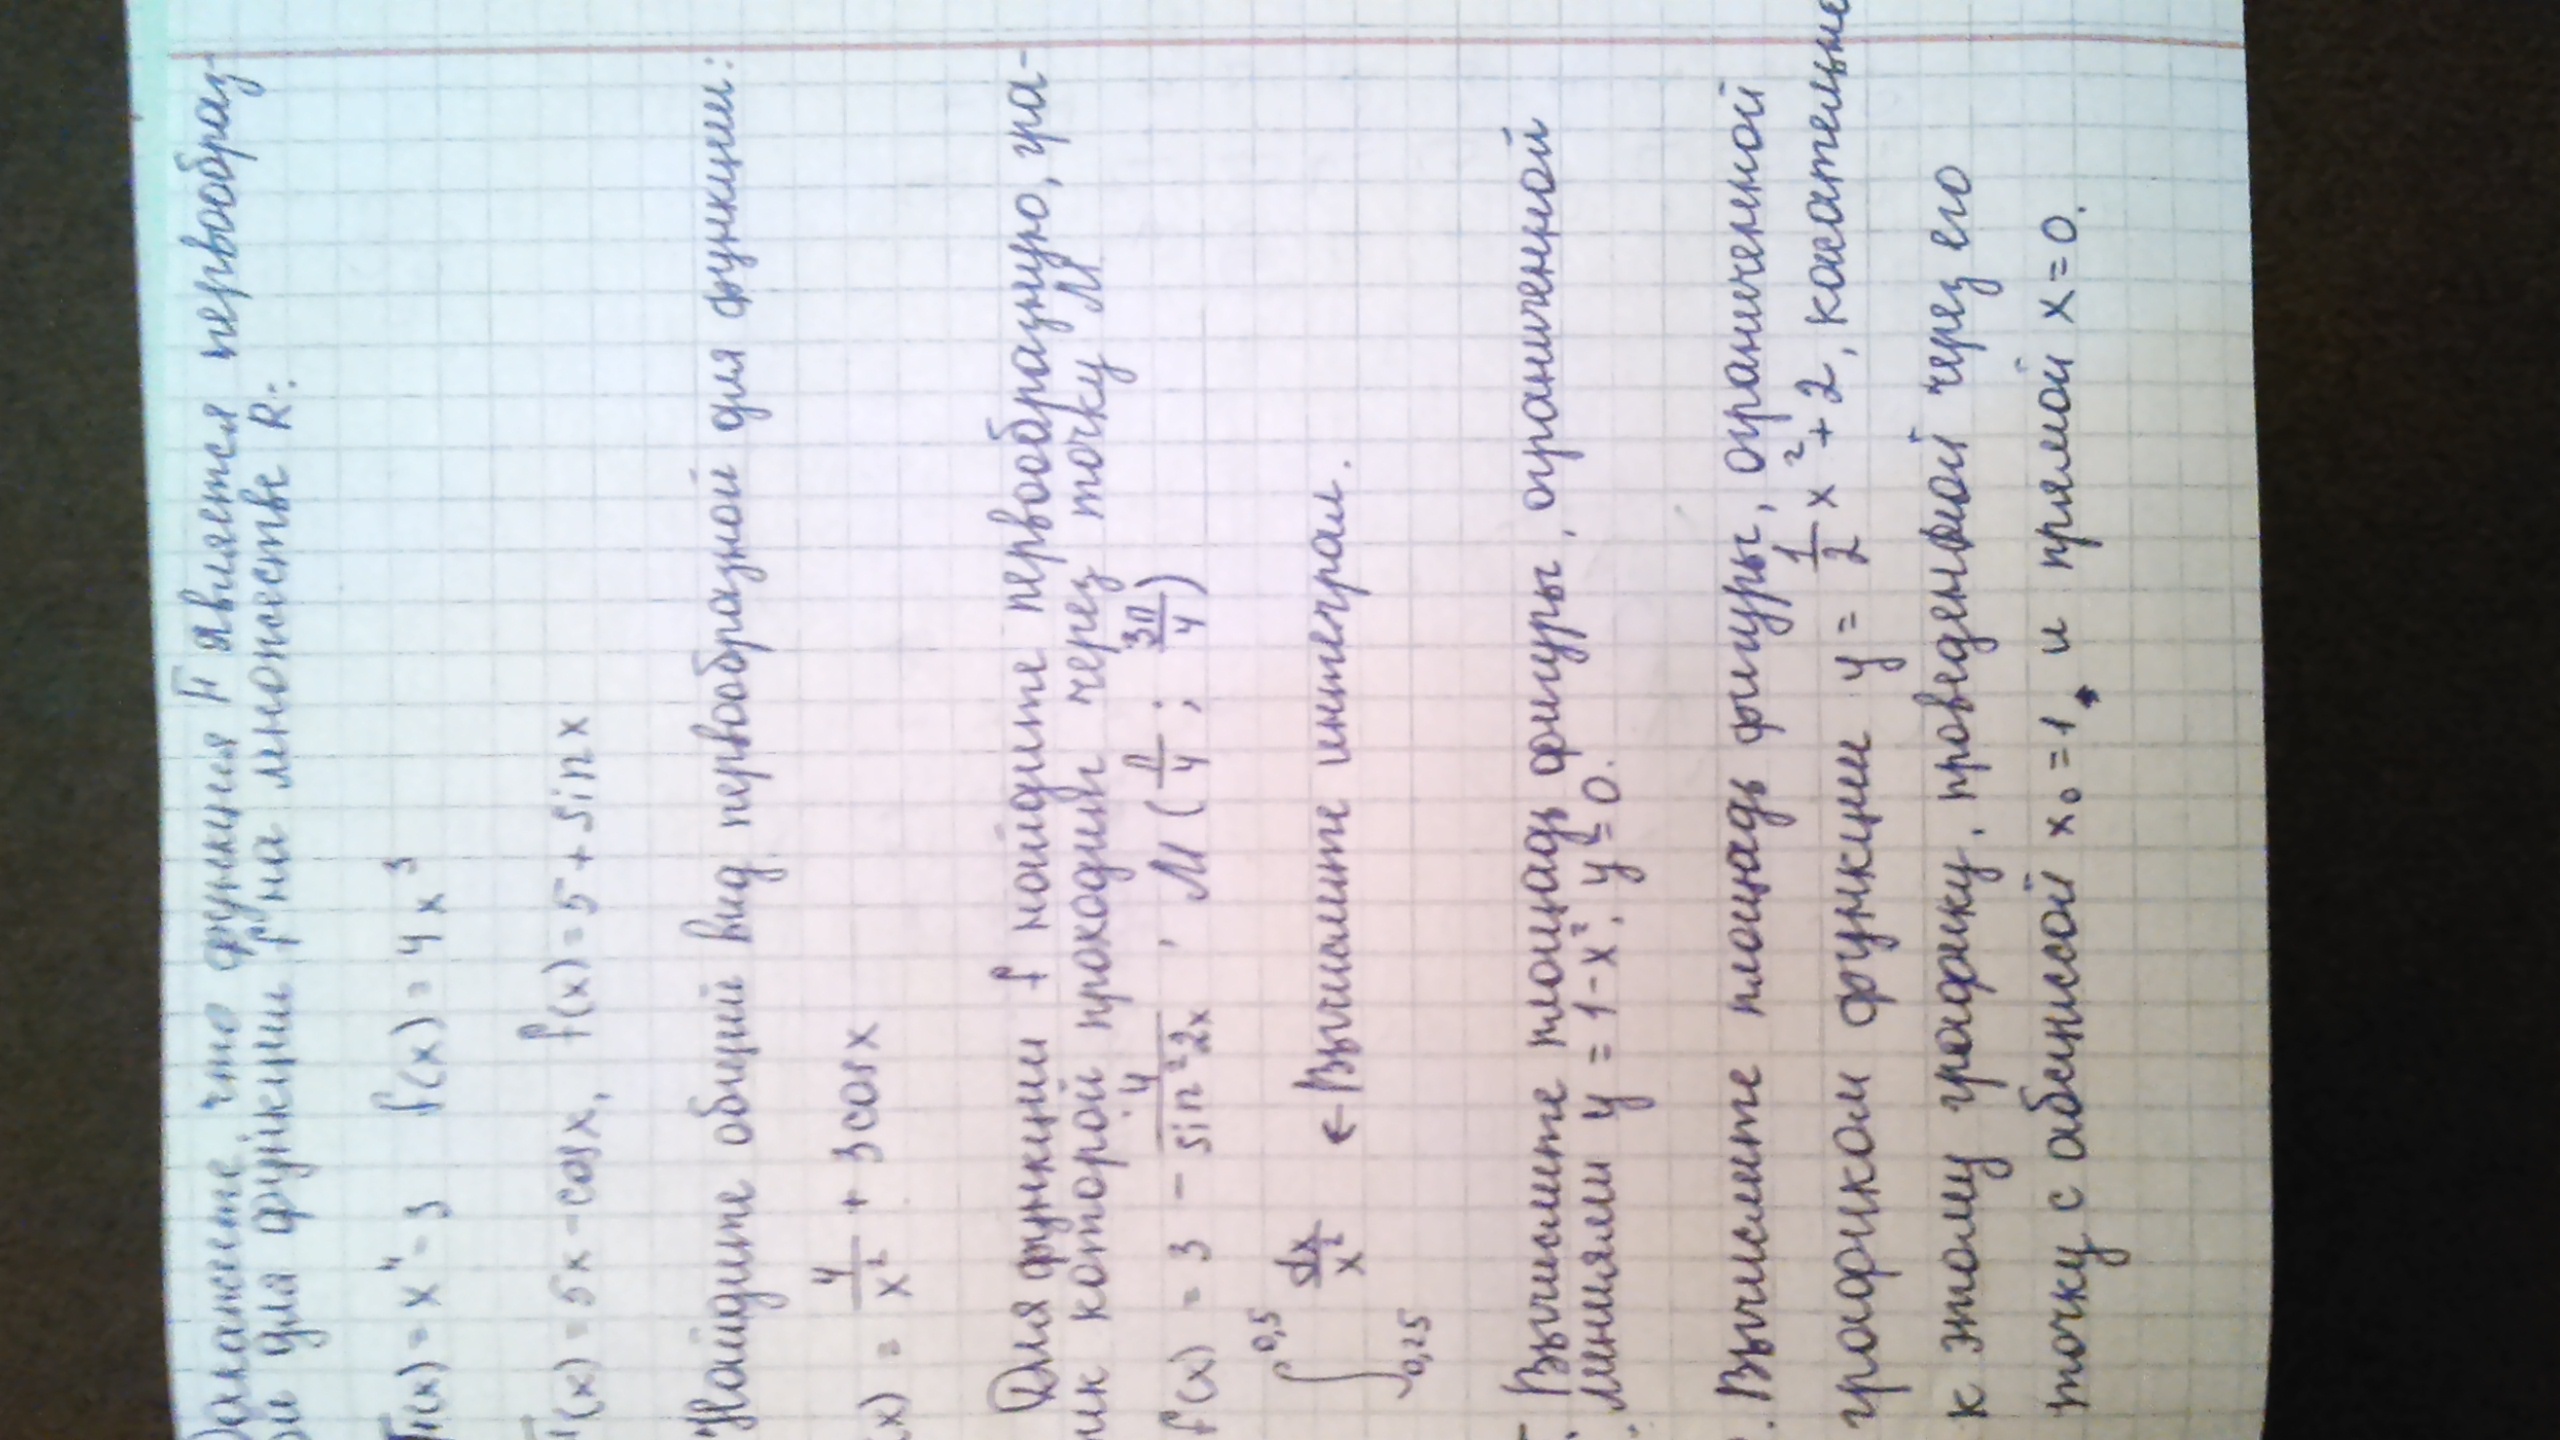 Докажите что функция F является первообраз-
ой для функции f на множестве R:
F(x) = x⁴ - 3 f(x) = 4x³
F(x) = 5x - cosx, f(x) = 5 + sinx
Найдите общий вид первообразной для функции:
(x) = 4/x² + 3cosx
Для функции f найдите первообразную, гра-
ик которой проходит через точку М
f(x) = 3 - 4/sin²2x, М (π/4; 3π/4)
∫₀,₂₅^0,5 dx/x² ← Вычислите интеграл.
Вычислите площадь фигуры, ограниченной
линиями y = 1 - x², y = 0.
. Вычислите площадь фигуры, ограниченной
графиком функции y = 1/2 x² + 2, касательные
к этому графику, проведенной через его
точку с абсциссой x₀ = 1, и прямой x = 0.